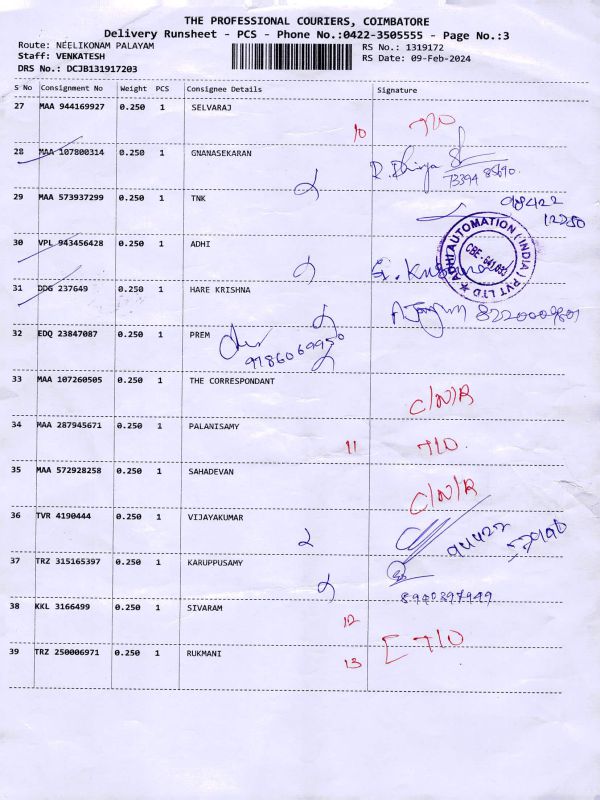 THE PROFESSIONAL COURIERS, COIMBATORE
Delivery Runsheet - PCS - Phone No.:0422-3505555 - Page No.:3
Route: NEELIKONAM PALAYAM
RS No.: 1319172
Staff: VENKATESH
RS Date: 09-Feb-2024
DRS No.: DCJB131917203
S No Consignment No Weight PCS Consignee Details Signature
27 MAA 944169927 0.250 1 SELVARAJ
10 T/O
28 MAA 107800314 0.250 1 GNANASEKARAN
R. Dhivya
73394 85690
29 MAA 573937299 0.250 1 TNK
98422
12250
30 VPL 943456428 0.250 1 ADHI
ADHI AUTOMATION (INDIA) PVT LTD
CBE-641 035
31 DDG 237649 0.250 1 HARE KRISHNA
32 EDQ 23847087 0.250 1 PREM
33 MAA 107260505 0.250 1 THE CORRESPONDANT
C/N/R
34 MAA 287945671 0.250 1 PALANISAMY
11 T/O
35 MAA 572928258 0.250 1 SAHADEVAN
C/N/R
36 TVR 4190444 0.250 1 VIJAYAKUMAR
37 TRZ 315165397 0.250 1 KARUPPUSAMY
8940397949
38 KKL 3166499 0.250 1 SIVARAM
12
[ T/O
39 TRZ 250006971 0.250 1 RUKMANI
13